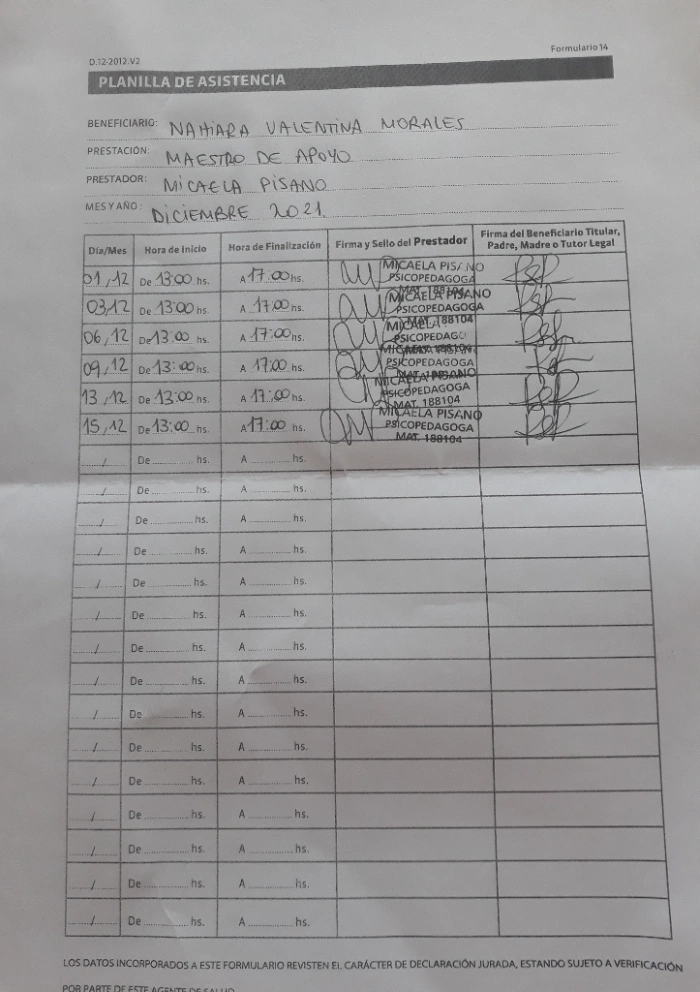 D.12-2012.V2
Formulario 14
PLANILLA DE ASISTENCIA
BENEFICIARIO: NAHIARA VALENTINA MORALES
PRESTACIÓN: MAESTRO DE APOYO
PRESTADOR: MICAELA PISANO
MES Y AÑO: DICIEMBRE 2021
Día/Mes Hora de Inicio Hora de Finalización Firma y Sello del Prestador Firma del Beneficiario Titular, Padre, Madre o Tutor Legal
01/12 De 13:00 hs. A 17:00 hs. MICAELA PISANO PSICOPEDAGOGA MAT. 188104
03/12 De 13:00 hs. A 17:00 hs. MICAELA PISANO PSICOPEDAGOGA MAT. 188104
06/12 De 13:00 hs. A 17:00 hs. MICAELA PSICOPEDAGO MAT. 188104
09/12 De 13:00 hs. A 17:00 hs. MICAELA PISANO PSICOPEDAGOGA
13/12 De 13:00 hs. A 17:00 hs. MICAELA PISANO PSICOPEDAGOGA MAT. 188104
15/12 De 13:00 hs. A 17:00 hs. MICAELA PISANO PSICOPEDAGOGA MAT. 188104
/ De hs. A hs.
/ De hs. A hs.
/ De hs. A hs.
/ De hs. A hs.
/ De hs. A hs.
/ De hs. A hs.
/ De hs. A hs.
/ De hs. A hs.
/ De hs. A hs.
/ De hs. A hs.
/ De hs. A hs.
/ De hs. A hs.
/ De hs. A hs.
/ De hs. A hs.
/ De hs. A hs.
LOS DATOS INCORPORADOS A ESTE FORMULARIO REVISTEN EL CARÁCTER DE DECLARACIÓN JURADA, ESTANDO SUJETO A VERIFICACIÓN
POR PARTE DE ESTE AGENTE DE SALUD